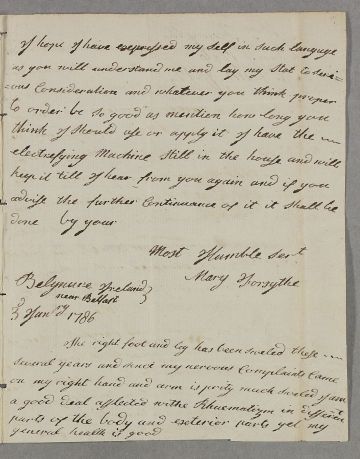 I hope I have expressed my self in such languge
as you will understand me and lay my Stat to seri=
=ous Consideration and whatever you think proper
to order be so good as mention how long you
think I should use or apply it I have the
electrefying Machine still in the house and will
keep it till I hear from you again and if you
advise the further Continuance of it it shall be
done by your
Most Humble Sert
Mary Forsythe
Belymure Ireland
near Belfast
3d Janry 1786
The right foot and leg has been sweled these
several years and since my nervous Complaints Came
on my right hand and arm is prety much sweled I am
a good deal affected withe Rhuematism in different
parts of the body and exterior parts yet my
general health is good